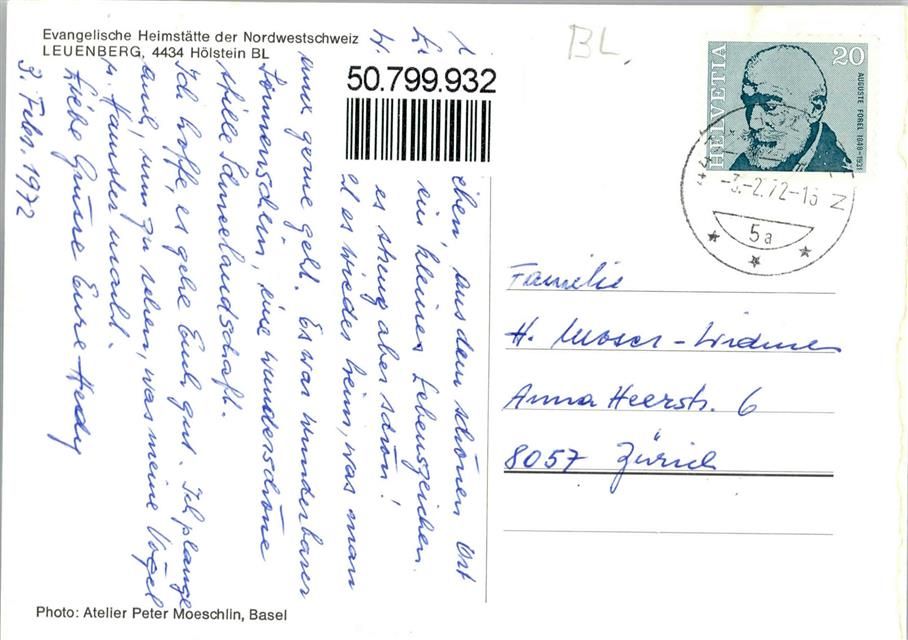 Evangelische Heimstätte der Nordwestschweiz
LEUENBERG, 4434 Hölstein BL
BL
50.799.932
HELVETIA
20
AUGUSTE FOREL 1848-1931
-3.-2.72-16
5a
3. Febr. 1972
eben aus dem schönen Ort
ein kleines Lebenszeichen.
es streng aber schön!
et es wieder heim, was man
und gerne geht. Es war wunderbarer
Sonnenschein, eine wunderschöne
stille Schneelandschaft.
Ich hoffe, es gehe Euch gut. Ich plange
um zu sehen, was meine Vögel
u. Hamster macht.
Liebe Grüsse Eure Hedy
Familie
H. Moser-Widmer
Anna Heerstr. 6
8057 Zürich
Photo: Atelier Peter Moeschlin, Basel